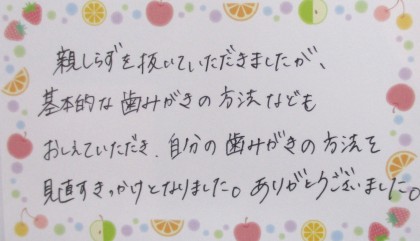 親しらずを抜いていただきましたが、
基本的な歯みがきの方法なども
おしえていただき、自分の歯みがきの方法を
見直すきっかけとなりました。ありがとうございました。